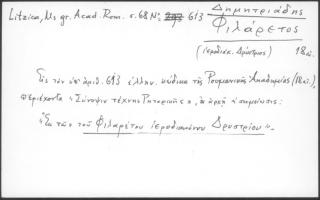 Litzica, Ms gr. Acad. Rom. σ. 68 Nº 613
Δημητριάδης
Φιλάρετος
(ἱεροδιάκ. Δρύστρας) 18 αἰ.
Εἰς τὸν ὑπ' ἀριθ. 613 ἑλλην. κώδικα τῆς Ρουμανικῆς Ἀκαδημείας (18 αἰ.),
περιέχοντα «Σύνοψιν τέχνης Ρητορικῆς», ἐν ἀρχῇ σημείωσις:
«Ἐκ τῶν τοῦ Φιλαρέτου ἱεροδιακόνου Δρυστρίου».